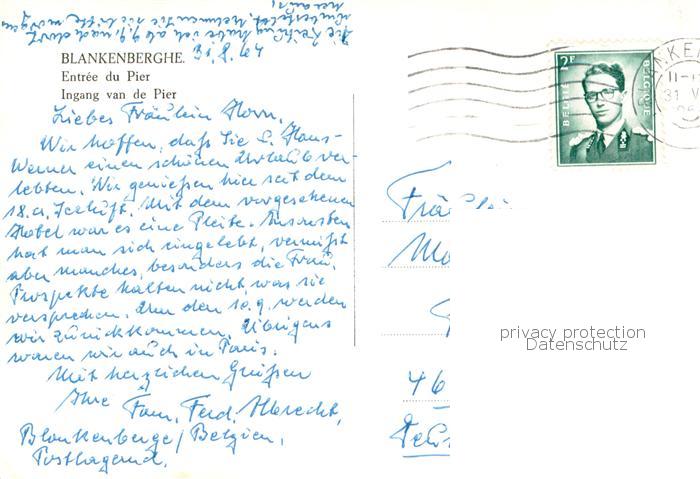 BLANKENBERGHE.
Entrée du Pier
Ingang van de Pier
31.8.64
Liebes Fräulein Horn,
Wir hoffen, daß Sie u. Hans-
Werner einen schönen Urlaub ver-
lebten. Wir genießen hier seit dem
18.8. Seeluft. Mit dem vorgesehenen
Hotel war es eine Pleite. Ansonsten
hat man sich eingelebt, vermißt
aber manches, besonders die Frau.
Prospekte halten nicht, was sie
versprechen. Um den 10.9. werden
wir zurückkommen. Übrigens
waren wir auch in Paris.
Mit herzlichen Grüßen
Ihre Fam. Ferd. Albrecht,
Blankenberge/Belgien,
Postlagernd.
2F
BELGIË BELGIQUE
11-
31 V
privacy protection
Datenschutz
46